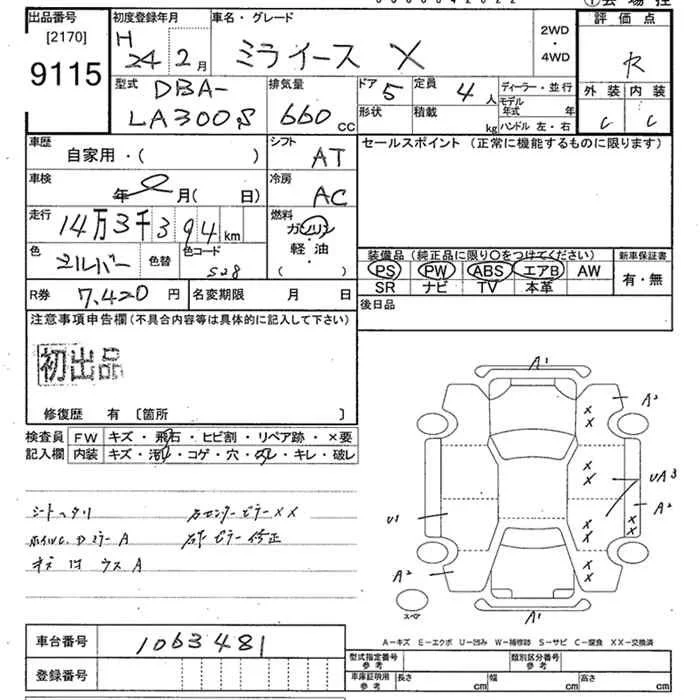 出品番号 初度登録年月 車名・グレード 評価点
[2170] 9115
H 24年 2月 ミライース X 2WD・4WD R
型式 排気量 ドア 定員 ディーラー・並行 外装 内装
DBA-LA300S 660 CC 5 4人 モデル年式 年 C C
形状 積載 kg ハンドル 左・右
車歴 自家用・( ) シフト AT セールスポイント (正常に機能するものに限ります)
車検 年 月( 日) 冷房 AC
走行 14万3千394km 燃料 ガソリン 軽・油 ( )
色 シルバー 色替 色コード S28
装備品 (純正品に限り○をつけてください) 新車保証書
PS PW ABS エアB AW 有・無
SR ナビ TV 本革
R券 7,420円 名変期限 月 日 後日品
注意事項申告欄(不具合内容等は具体的に記入して下さい)
初出品
修復歴 有 [箇所 ]
検査員 FW キズ・飛石・ヒビ割・リペア跡・×要
記入欄 内装 キズ・汚れ・コゲ・穴・スレ・キレ・破レ
シートヘタリ 右センターピラーXX
A 右F ピラー修正
キズ ウス A
A1
A2
XX
UA3
A2
XX
U1
XX
A2
A1
スペア
A-キズ E-エクボ U-凹み W-補修跡 S-サビ C-腐食 XX-交換済
車台番号 1063481
登録番号
型式指定番号 参考 類別区分番号 参考
車庫証明用 参考 長さ cm 幅 cm 高さ cm